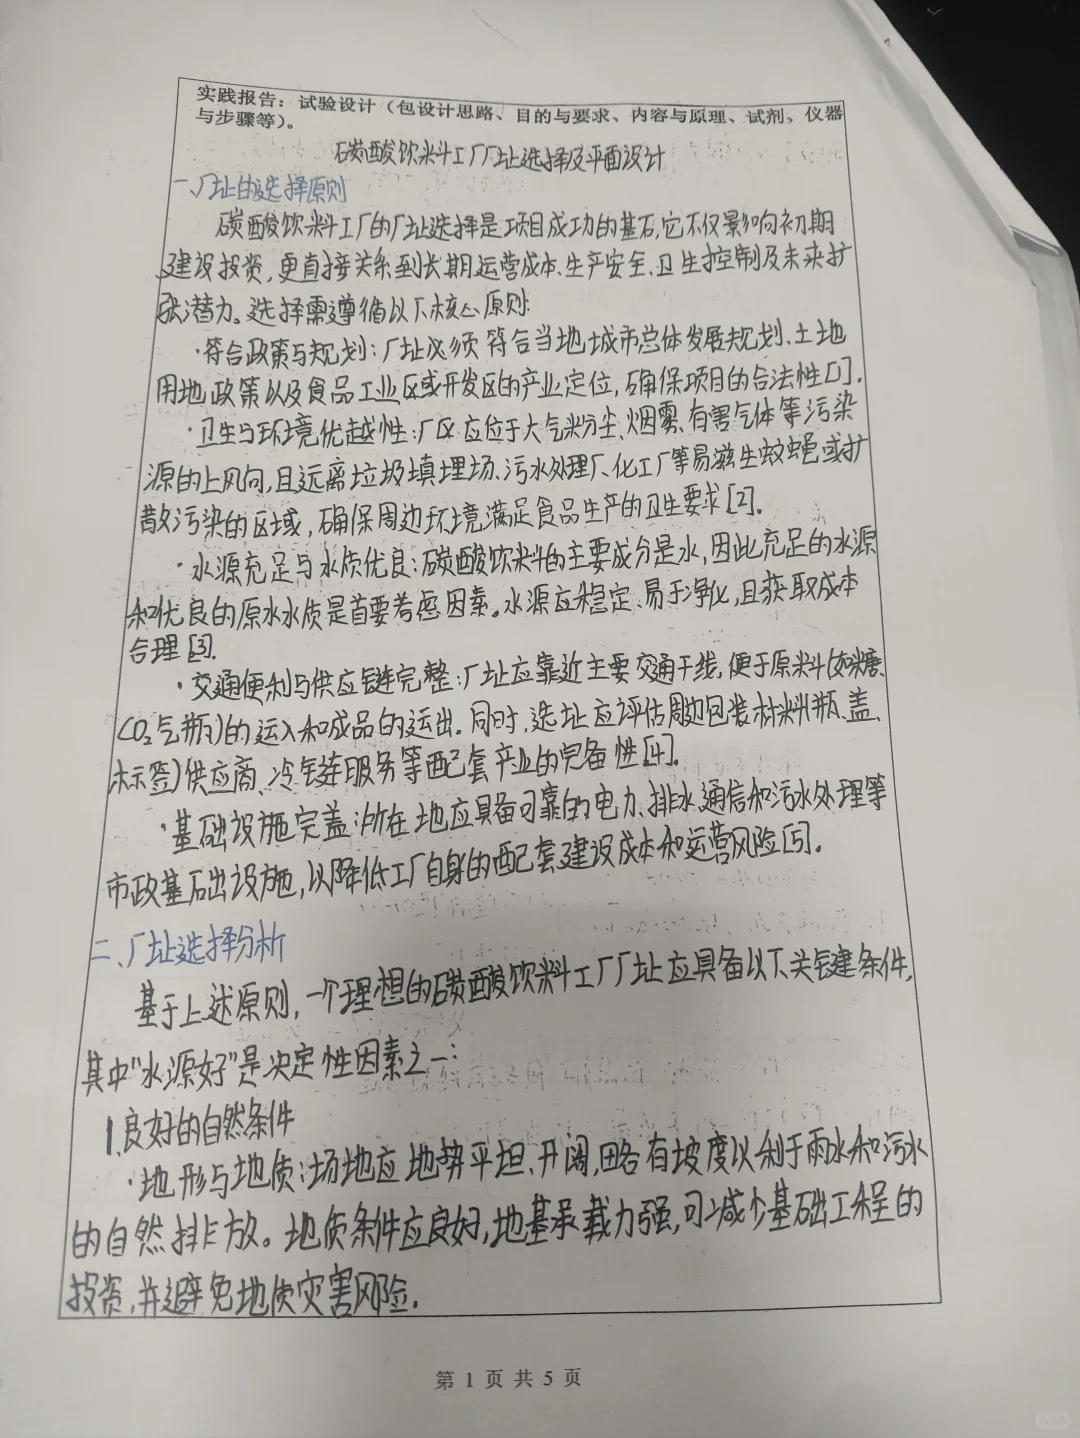 实践报告：试验设计（包设计思路、目的与要求、内容与原理、试剂，仪器
与步骤等）。
碳酸饮料工厂厂址选择及平面设计
一、厂址的选择原则
碳酸饮料工厂的厂址选择是项目成功的基石,它不仅影响初期
建设投资,更直接关系到长期运营成本、生产安全、卫生控制及未来扩
张潜力。选择需遵循以下核心原则:
·符合政策与规划:厂址必须符合当地城市总体发展规划、土地
用地政策以及食品工业区或开发区的产业定位,确保项目的合法性[1].
·卫生与环境优越性:厂区应位于大气粉尘、烟雾、有害气体等污染
源的上风向,且远离垃圾填埋场、污水处理厂、化工厂等易滋生蚊蝇或扩
散污染的区域,确保周边环境满足食品生产的卫生要求[2].
·水源充足与水质优良:碳酸饮料的主要成分是水,因此充足的水源
和优良的原水水质是首要考虑因素。水源应稳定、易于净化,且获取成本
合理[3].
·交通便利与供应链完整:厂址应靠近主要交通干线,便于原料(如糖、
CO₂气瓶)的运入和成品的运出.同时,选址应评估周边包装材料(瓶、盖、
标签)供应商、冷链服务等配套产业的完备性[4].
·基础设施完盖:所在地应具备可靠的电力、排水、通信和污水处理等
市政基础设施,以降低工厂自身的配套建设成本和运营风险[5].
二、厂址选择分析
基于上述原则,一个理想的碳酸饮料工厂厂址应具备以下关键条件,
其中"水源好"是决定性因素之一:
1.良好的自然条件
·地形与地质:场地应地势平坦、开阔,略有坡度以利于雨水和污水
的自然排放。地质条件应良好,地基承载力强,可减少基础工程的
投资,并避免地质灾害风险.
第 1 页 共 5 页